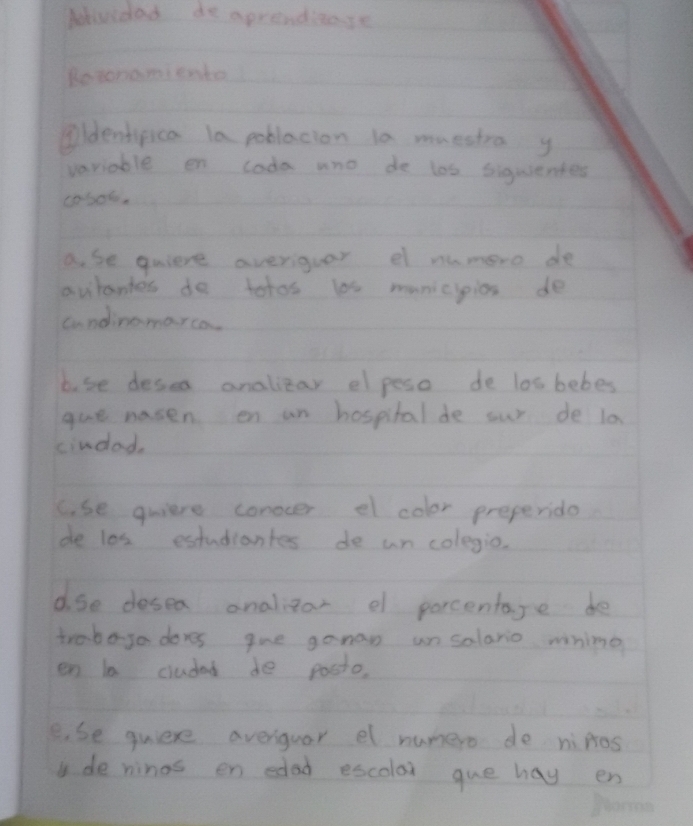 Actividad de aprendizaje
Razonamiento
① Identifica la poblacion la muestra y
variable en cada uno de los siguientes
casos.
a. se quiere averiguar el numero de
avitantes de totos los municipios de
cundinamarca.
b. se desea analizar el peso de los bebes
que nasen en un hospital de sur de la
ciudad.
c. se quiere conocer el color preferido
de los estudiantes de un colegio.
d. se desea analizar el porcentaje de
trabajadores que ganan un salario minimo
en la ciudad de pasto.
e. se quiere averiguar el numero de niños
y de ninos en edad escolar que hay en
Norma